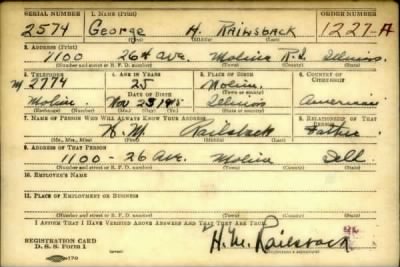 SERIAL NUMBER 1. NAME (Print) ORDER NUMBER
2574 George H. RAILSBACK 1227-A
(First) (Middle) (Last)
2. ADDRESS (Print)
1100 26th AVE. Moline R.I. Illinois
(Number and street or R. F. D. number) (Town) (County) (State)
3. TELEPHONE 4. AGE IN YEARS 5. PLACE OF BIRTH 6. COUNTRY OF CITIZENSHIP
M 2774 25 Moline
DATE OF BIRTH (Town or county)
Moline Nov 23 Illinois American
(Exchange) (No.) (Mo.) (Day) (Yr.) (State or country)
7. NAME OF PERSON WHO WILL ALWAYS KNOW YOUR ADDRESS 8. RELATIONSHIP OF THAT PERSON
H. M. Railsback Father
(Mr., Mrs., Miss) (First) (Middle) (Last)
9. ADDRESS OF THAT PERSON
1100 - 26 Ave. Moline Ill
(Number and street or R. F. D. number) (Town) (County) (State)
10. EMPLOYER'S NAME
11. PLACE OF EMPLOYMENT OR BUSINESS
(Number and street or R. F. D. number) (Town) (County) (State)
I AFFIRM THAT I HAVE VERIFIED ABOVE ANSWERS AND THAT THEY ARE TRUE.
REGISTRATION CARD
D. S. S. Form 1
H. M. Railsback